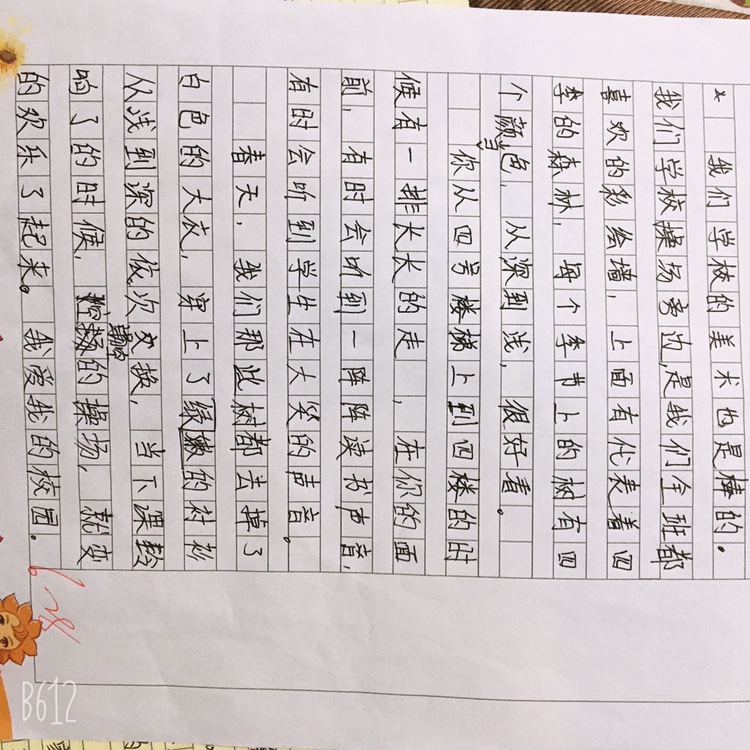 我们学校的美术也是棒的。
我们学校操场旁边,是我们全班都
喜欢的彩绘墙,上面有代表着四
季的森林,每个季节上的树有四
个颜色,从深到浅,很好看。
你从四号楼梯上到四楼的时
候有一排长长的走,在你的面
前,有时会听到一阵阵读书声音,
有时会听到学生在大笑的声音。
春天,我们那些树都去掉了
白色的大衣,穿上了绿嫩的衬衫
从浅到深的依次更换,当下课铃
响了的时候,的操场,就变
的欢乐了起来。我爱我的校园。
B612